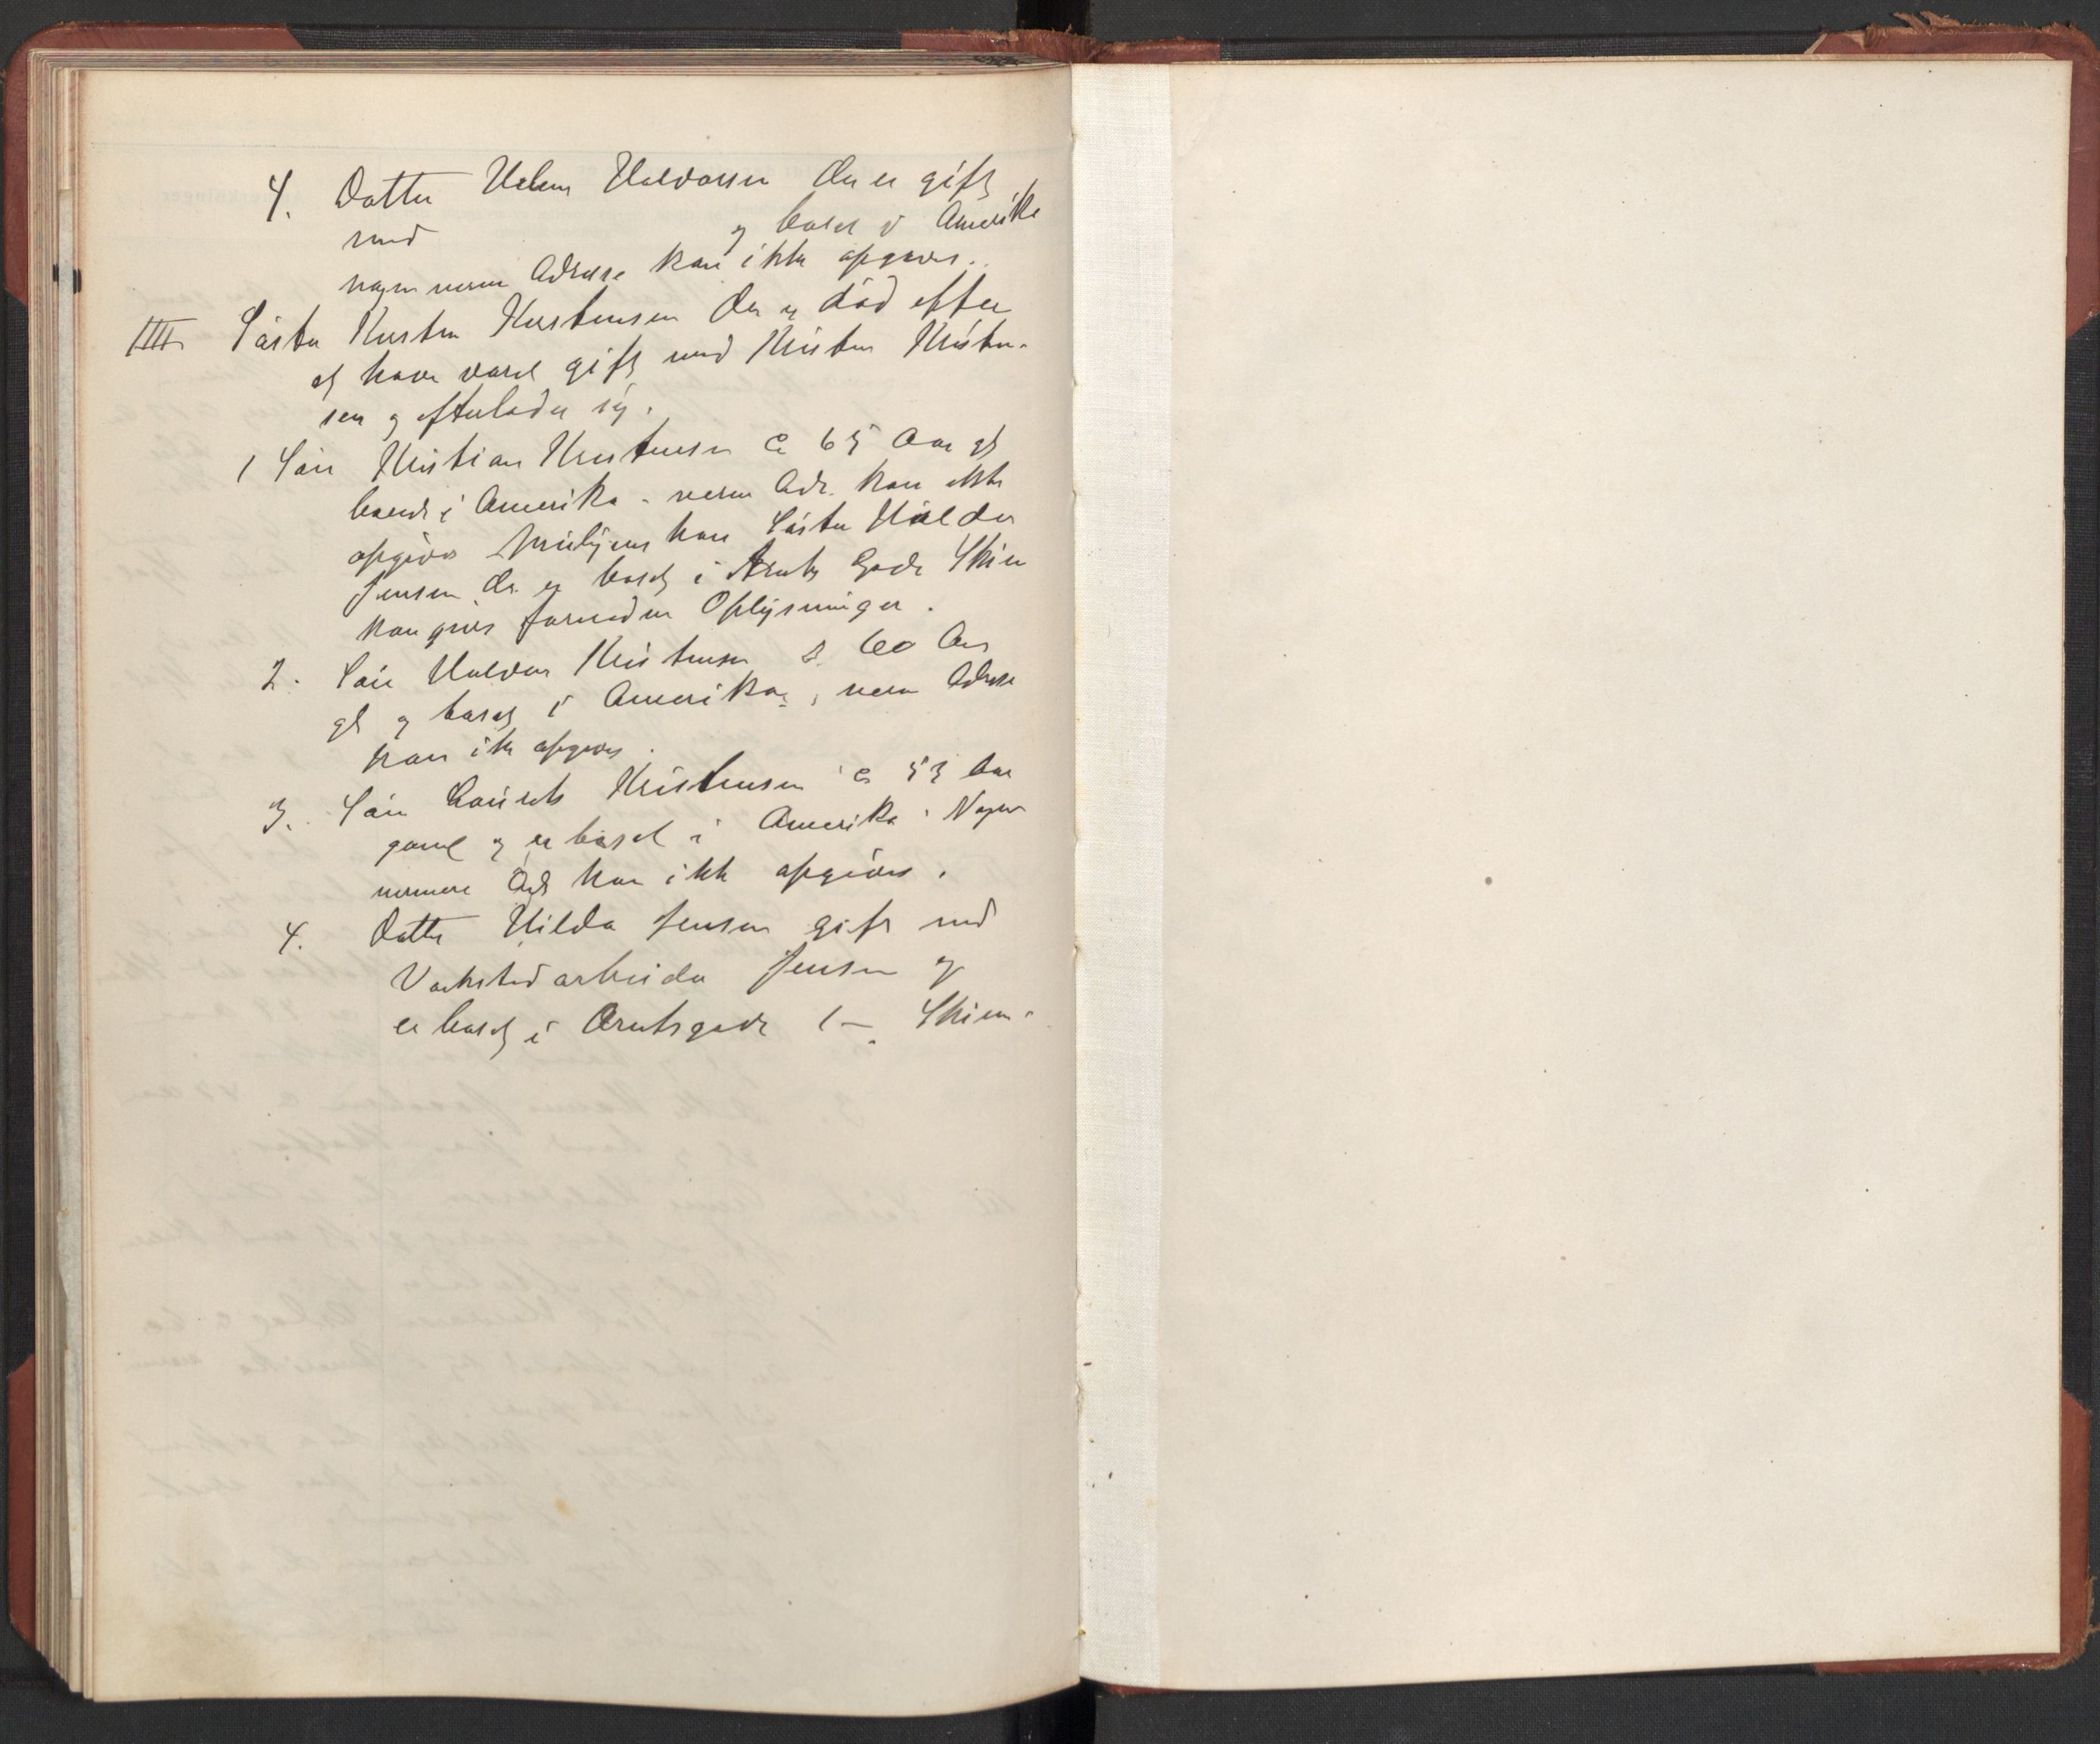 4. Datter Helene Halvorsen der er gift
med og bosat i Amerika
nogen nerm Adresse kan ikke opgives.
IIII Söster Kirsten Kirstensen der er död efter
at have vært gift med Kristen Kristen-
sen og efterlader sig.
1 Sön Kristian Kristensen c 65 Aar gl
boende i Amerika - nerm Adr. kan ikke
opgives Muligens kan Söster Hilda
Jensen der er bosat i Aruts Gade Skien
kan gives fornödne Oplysninger.
2. Sön Halvor Kristensen c. 60 Aar
gl og bosat i Amerika, nerm Adresse
kan ikke opgives.
3. Sön Laurits Kristensen c 53 Aar
gaml og er bosat i Amerika. Nogen
nermere Adr kan ikke opgives.
4. Datter Hilda Jensen gift med
Verksted arbeider Jensen og
er bosat i Arutsgade 1 - Skien.